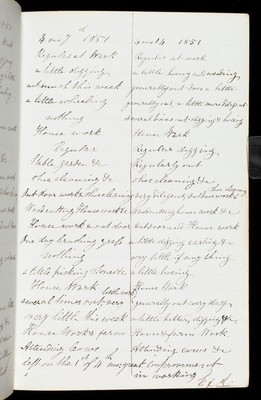 4 mo 7th 1851
Regular at Work
a little digging
not much this week
a little wheeling
nothing
House work
Regular
Stable garden &c
shoe cleaning &c
out door work & shoe cleaning
Wood cutting House work &c
House work & out door
One day brushing grass
nothing
a little picking stones &c
House Work
several times out, very little
very little this week
House Work & farm
Attending Cows
left on the 1st of 4th mo
4 mo 14 1851
Regular at work
a little hoeing and weeding
generally out does a little
generally out, a little more diligent
several times out digging & hoeing
House Work
Regular digging
Regularly out
shoe cleaning &c
very diligent, out door work & shoe cleaning
Wood cutting house work &c
out door and House work
a little digging
very little if any thing
a little hoeing
House Work
generally out every day
a little better, digging &c
House & farm Work
Attending cows &
great improvement
in working